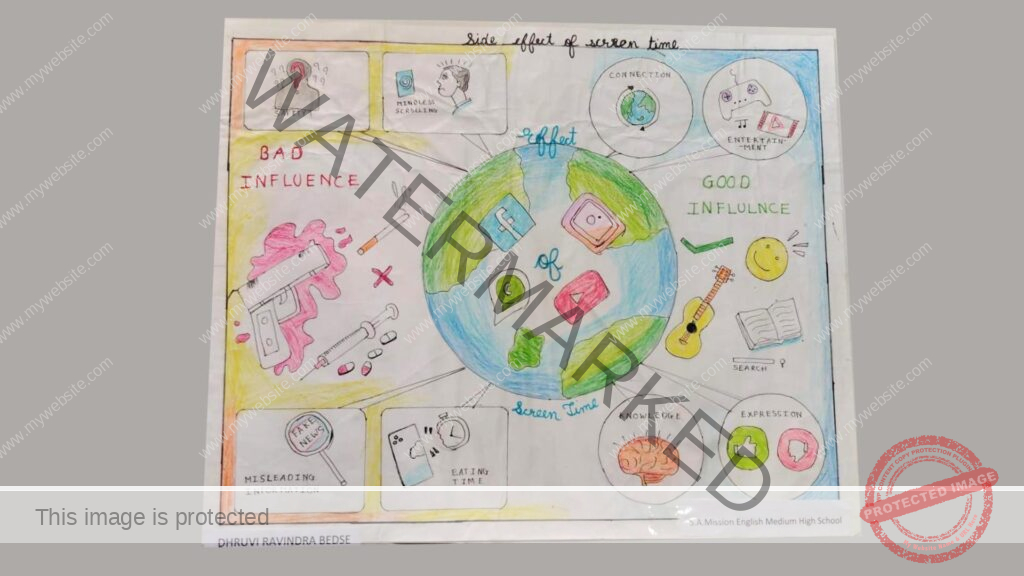 Side effect of screen time
MINDLESS
SCROLLING
CONNECTION
ENTERTAIN-
-MENT
Effect
of
Screen Time
BAD
INFLUENCE
GOOD
INFLULNCE
SEARCH
FAKE
NEWS
MISLEADING
INFORMATION
EATING
TIME
KNOWLEDGE
EXPRESSION
WATERMARKED
www.mywebsite.com
This image is protected
PROTECTED IMAGE
A.Mission English Medium High School
DHRUVI RAVINDRA BEDSE